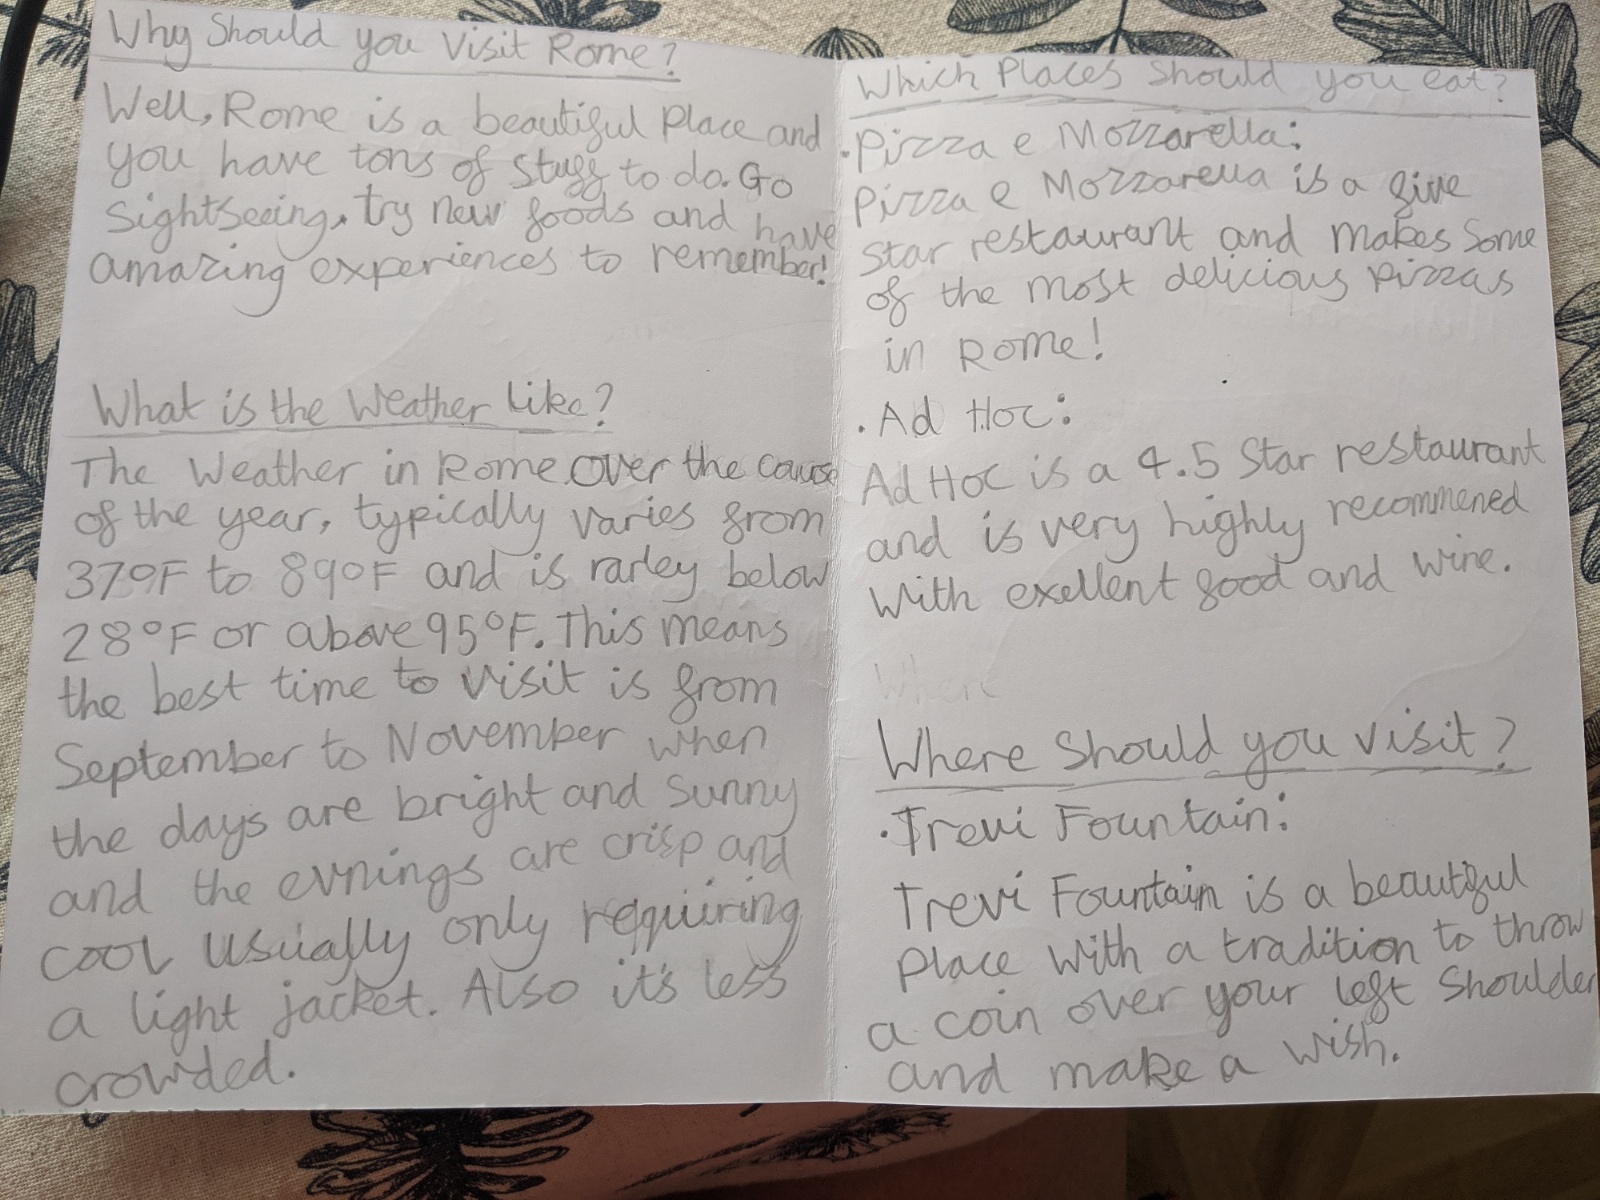 Why Should you Visit Rome?
Well, Rome is a beautiful Place and
you have tons of stuff to do. Go
Sightseeing, try new foods and have
amazing experiences to remember!
What is the Weather Like?
The Weather in Rome over the course
of the year, typically varies from
37°F to 89°F and is rarley below
28°F or above 95°F. This means
the best time to visit is from
September to November when
the days are bright and sunny
and the evnings are crisp and
cool usually only requiring
a light jacket. Also it's less
crowded.
Which Places Should you eat?
· Pizza e Mozzarella:
Pizza e Mozzarella is a five
Star restaurant and makes Some
of the most delicious pizzas
in Rome!
· Ad Hoc:
Ad Hoc is a 4.5 Star restaurant
and is very highly recommened
With excellent food and wine.
Where
Where Should you visit?
· Trevi Fountain:
Trevi Fountain is a beautiful
Place With a tradition to throw
a coin over your left Shoulder
and make a wish.